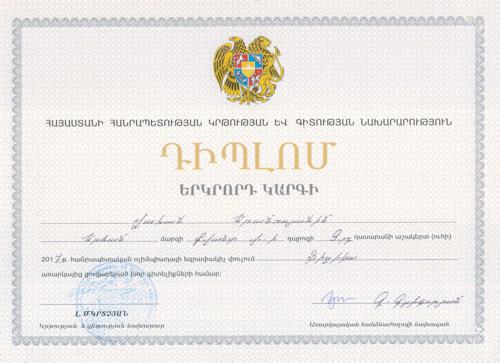 ՀԱՅԱՍՏԱՆԻ ՀԱՆՐԱՊԵՏՈՒԹՅԱՆ ԿՐԹՈՒԹՅԱՆ ԵՎ ԳԻՏՈՒԹՅԱՆ ՆԱԽԱՐԱՐՈՒԹՅՈՒՆ
ԴԻՊԼՈՄ
ԵՐԿՐՈՐԴ ԿԱՐԳԻ
Երևան մարզի դպրոցի 9-րդ դասարանի աշակերտ (ուհի)
2017թ հանրապետական օլիմպիադայի եզրափակիչ փուլում Ֆիզիկա
առարկայից ցուցաբերած խոր գիտելիքների համար:
Լ. ՄԿՐՏՉՅԱՆ
Կրթության և գիտության նախարար
Առարկայական հանձնաժողովի նախագահ